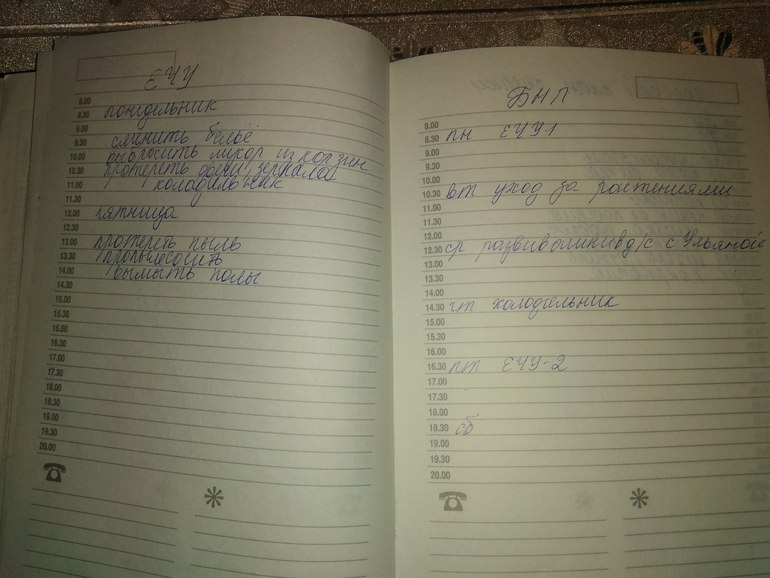 ЕЧУ
8.00
8.30 понидельник
9.00
9.30 сменить бельё
10.00 выбросить мусор из корзин
10.30 протереть зеркала
11.00 холодильник
11.30
12.00 пятница
12.30
13.00 протереть пыль
13.30 пропылесосить
14.00 вымыть полы
14.30
15.00
15.30
16.00
16.30
17.00
17.30
18.00
18.30
19.00
19.30
20.00
БНП
8.00
8.30 пн ЕЧУ-1
9.00
9.30
10.00
10.30 вт уход за растениями
11.00
11.30
12.00
12.30 ср д/с с Ульяной
13.00
13.30
14.00
14.30 чт холодильник
15.00
15.30
16.00
16.30 пт ЕЧУ-2
17.00
17.30
18.00
18.30 сб
19.00
19.30
20.00